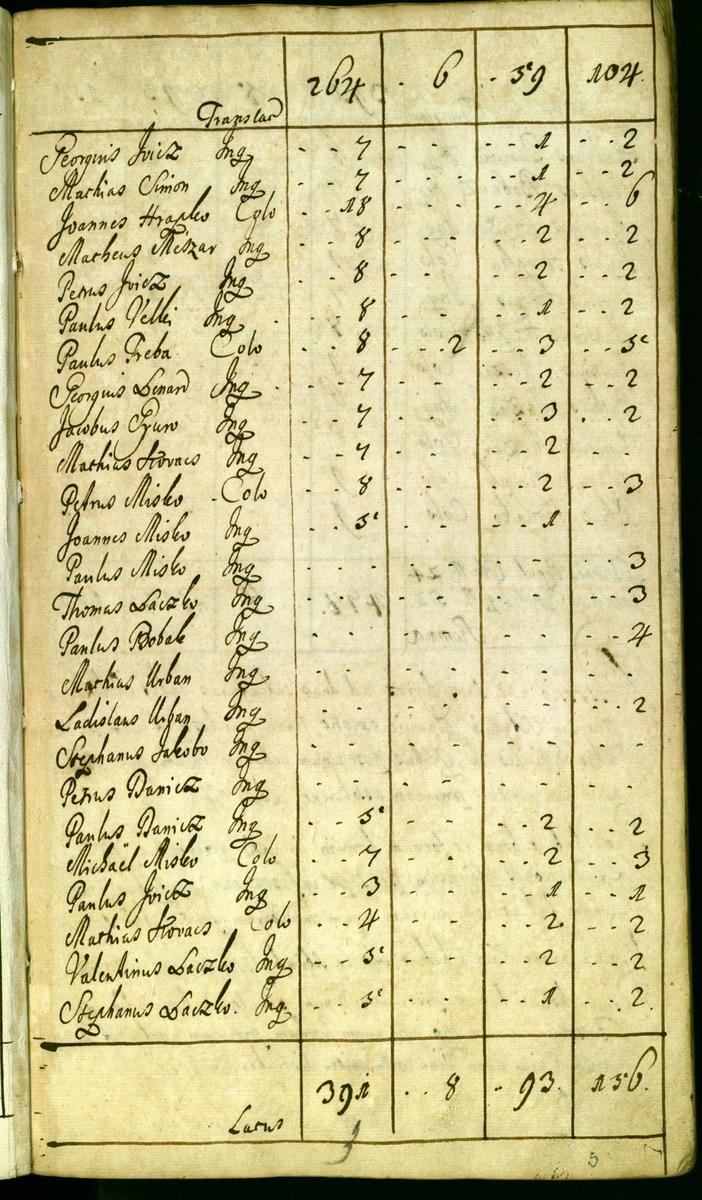 Translat 264 . 6 . . 59 104.
Georgius Jvicz Inq - - 7 - - - - - 1 - - 2
Mathias Simon Inq - - 7 - - - - - 1 - - 2
Joannes Hrapko Colo - . 18 - - - - - 4 - - 6
Matheus Mészar Inq - - 8 - - - - - 2 - - 2
Petrus Jvicz Inq - - 8 - - - - 2 - - 2
Paulus Vellei Inq . - - 8 - - - - - 1 - - 2
Paulus Treba Colo - - 8 - - 2 - - 3 - - 5
Georgius Lenard Inq - - 7 - - - - 2 - - 2
Jacobus Gyuro Inq - - 7 - - - - 3 . - 2
Mathias Kovacs Inq - - 7 - - - - 2 - -
Petrus Misko Colo - - 8 - - - - - 2 - - 3
Joannes Misko Inq - - 5 - - - - - 1 - -
Paulus Misko Inq - - - - - - - - - - - 3
Thomas Laczko Inq - - - - - - - - - - - 3
Paulus Bobak Inq - - - - - - - - - - 4
Mathias Urban Inq - - - - - - - - - - -
Ladislaus Urban Inq - - - - - - - - - - - 2
Stephanus Jakobo Inq - - - - - - - - - - - -
Petrus Danicz Inq - - - - - - - - - - - -
Paulus Danicz Inq - - 5 - - - - - 2 - - 2
Michaël Misko Colo - - 7 - - - - - 2 - - 3
Paulus Jvicz Inq - - 3 - - - - - 1 - - 1
Mathias Kovacs Colo - - 4 - - - - - 2 - - 2
Valentinus Laczko Inq - - 5 - - - - - 2 - - 2
Stephanus Laczko. Inq - - 5 - - - - - 1 - - 2
Latus 391 . . 8 . . 93. 156.
5